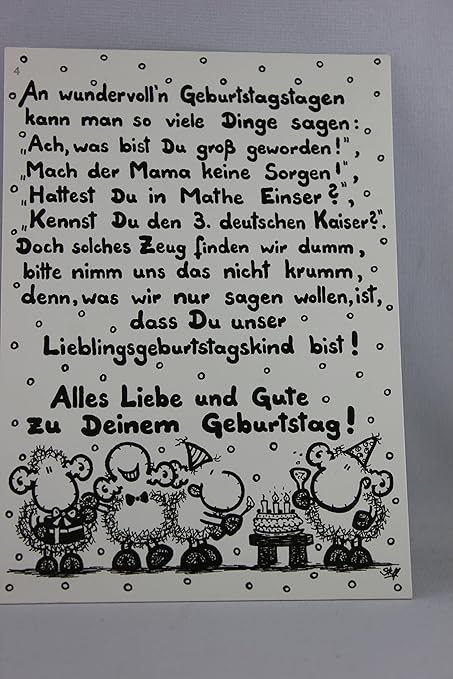 4
An wundervoll'n Geburtstagstagen
kann man so viele Dinge sagen:
„Ach, was bist Du groß geworden!",
„Mach der Mama keine Sorgen!",
„Hattest Du in Mathe Einser?",
„Kennst Du den 3. deutschen Kaiser?".
Doch solches Zeug finden wir dumm,
bitte nimm uns das nicht krumm,
denn, was wir nur sagen wollen, ist,
dass Du unser
Lieblingsgeburtstagskind bist!
Alles Liebe und Gute
zu Deinem Geburtstag!